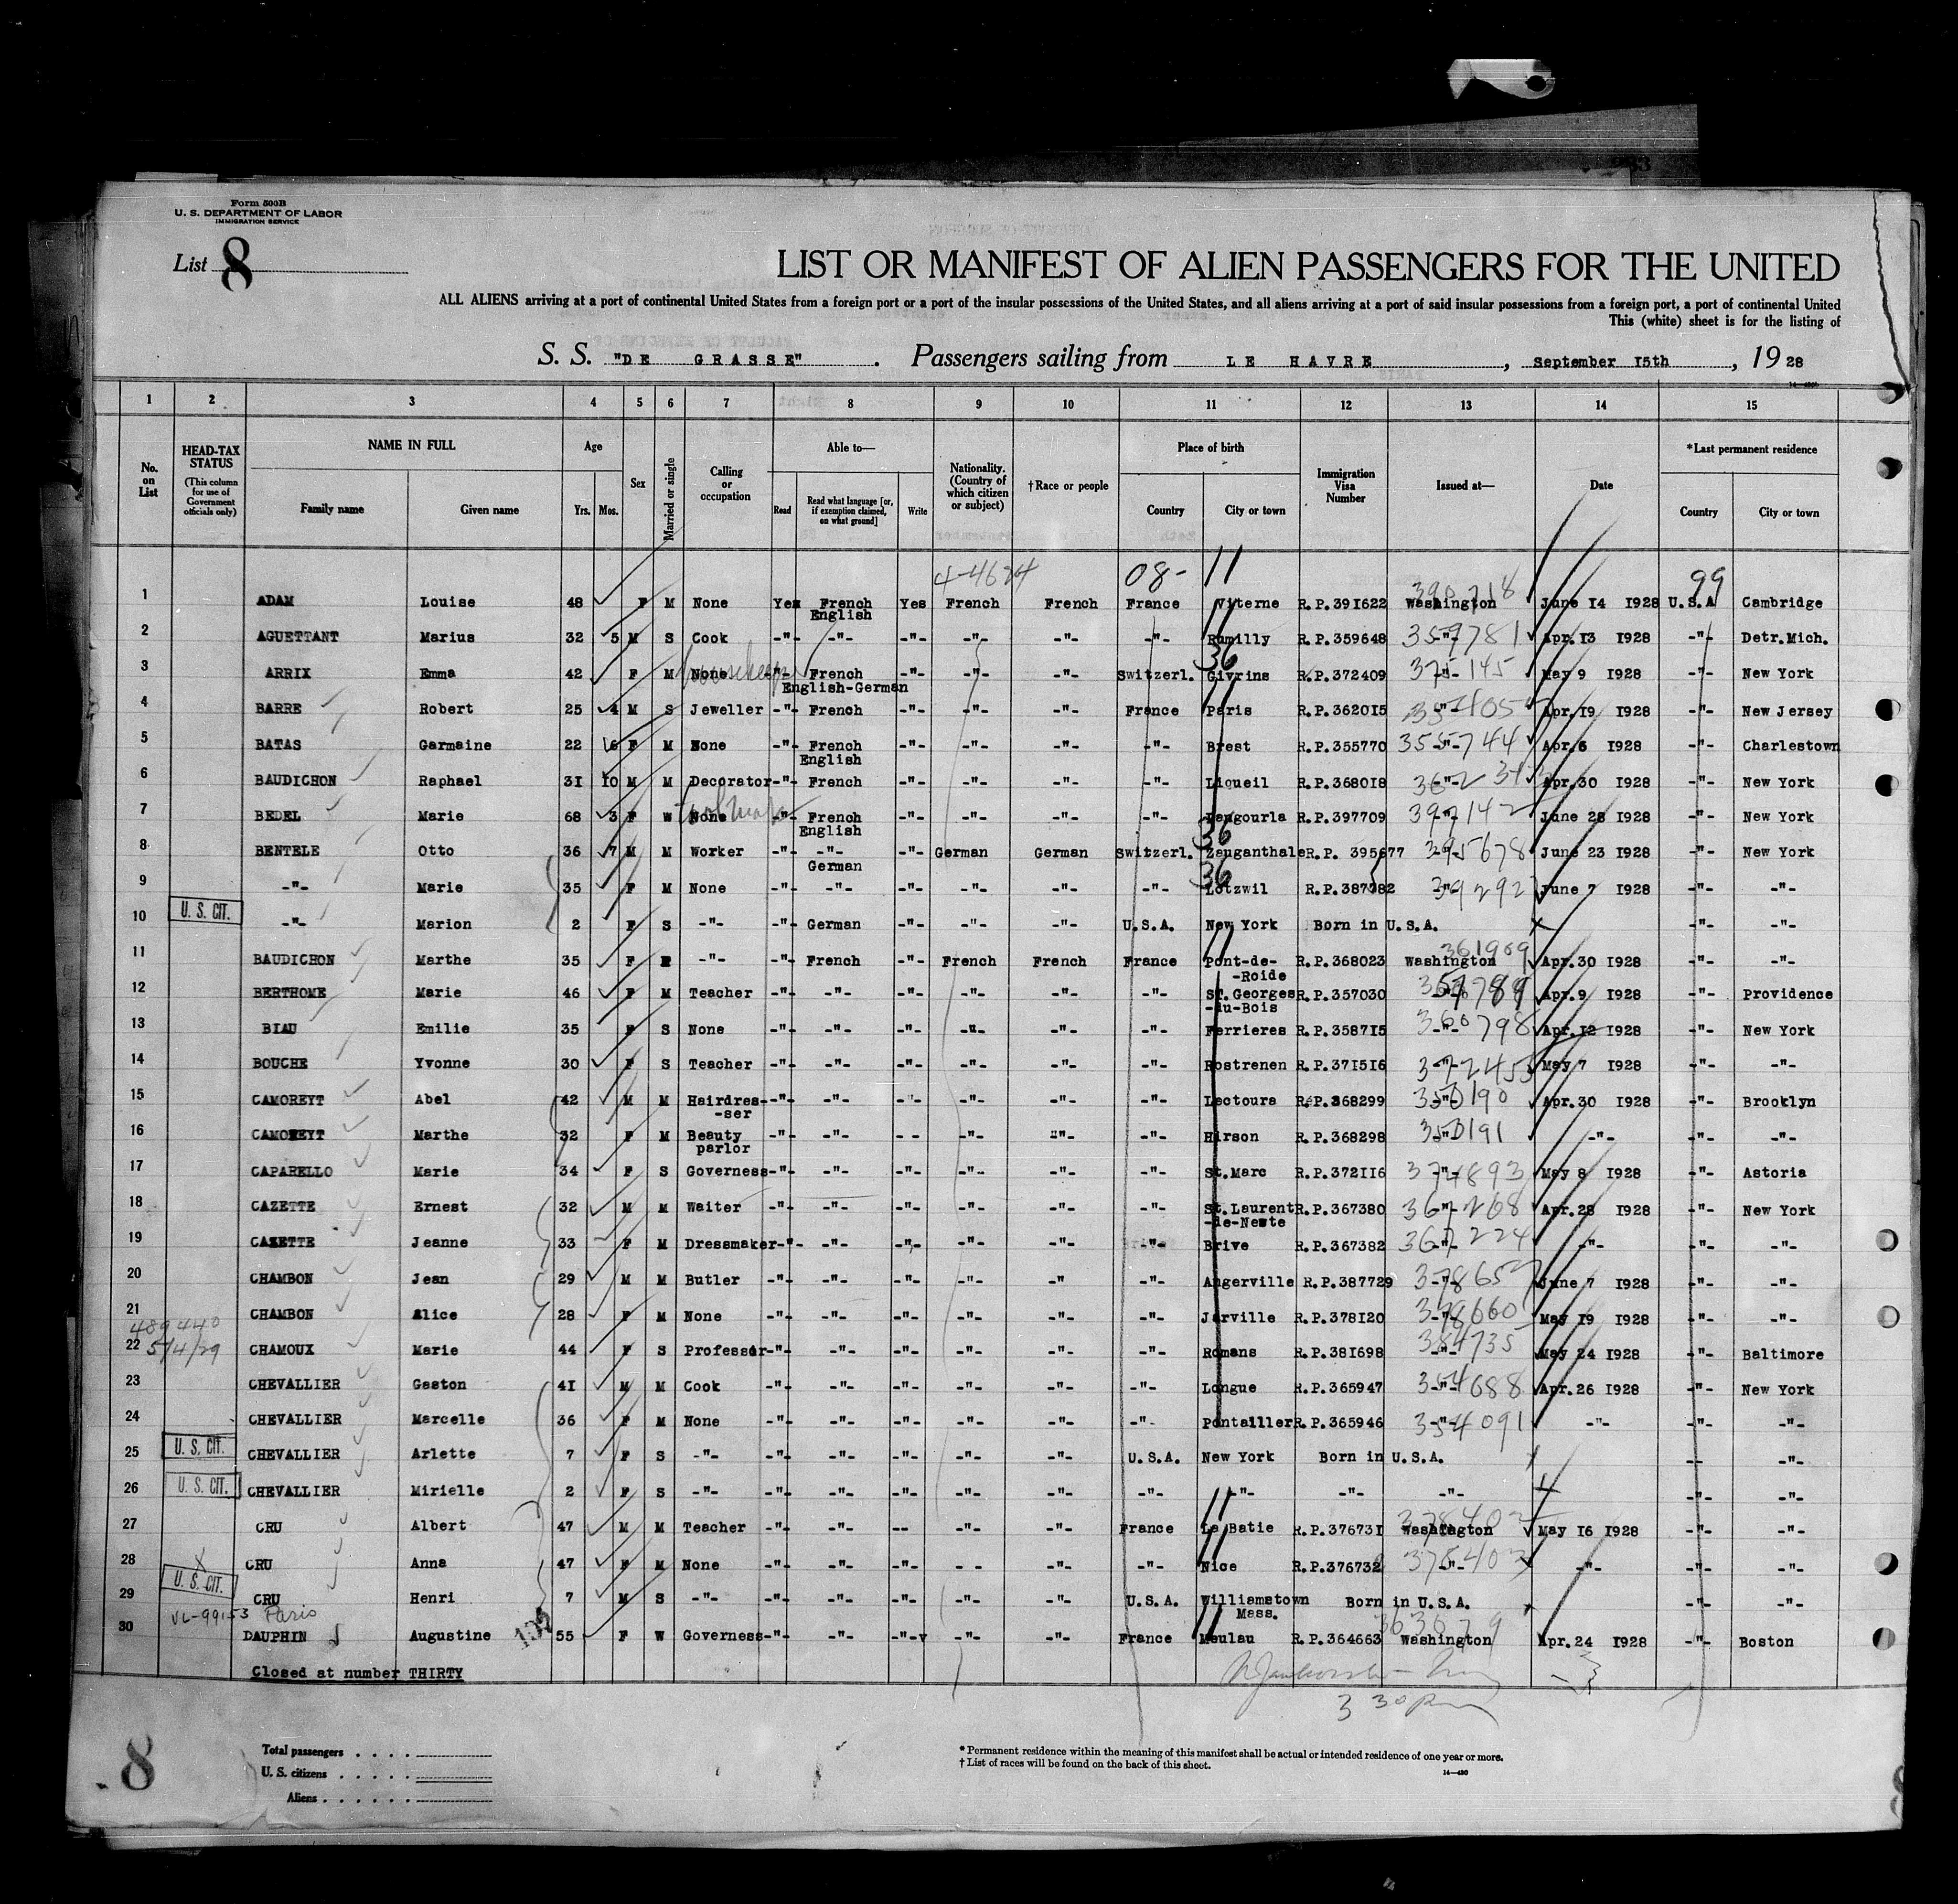 Form 500B
U. S. DEPARTMENT OF LABOR
IMMIGRATION SERVICE
List 8
LIST OR MANIFEST OF ALIEN PASSENGERS FOR THE UNITED
ALL ALIENS arriving at a port of continental United States from a foreign port or a port of the insular possessions of the United States, and all aliens arriving at a port of said insular possessions from a foreign port, a port of continental United
This (white) sheet is for the listing of
S. S. "DE GRASSE". Passengers sailing from LE HAVRE, September 15th, 1928
1 2 3 4 5 6 7 8 9 10 11 12 13 14 15
No. on List
HEAD-TAX STATUS
(This column for use of Government officials only)
NAME IN FULL
Family name Given name
Age
Yrs. Mos.
Sex
Married or single
Calling or occupation
Able to—
Read
Read what language [or, if exemption claimed, on what ground]
Write
Nationality. (Country of which citizen or subject)
†Race or people
Place of birth
Country City or town
Immigration Visa Number
Issued at—
Date
*Last permanent residence
Country City or town
4-4624 08- 11 99
1 ADAM Louise 48 F M None Yes French English Yes French French France Viterne R.P.391622 Washington 390718 June 14 1928 U.S.A Cambridge
2 AGUETTANT Marius 32 5 M S Cook -"- -"- -"- -"- -"- -"- Rumilly R.P.359648 -"- 359781 Apr.13 1928 -"- Detr.Mich.
3 ARRIX Emma 42 F M None -"- French English-German -"- -"- -"- Switzerl. 36 Givrins R.P.372409 -"- 375145 May 9 1928 -"- New York
4 BARRE Robert 25 4 M S Jeweller -"- French -"- -"- -"- France Paris R.P.362015 -"- Apr.19 1928 -"- New Jersey
5 BATAS Garmaine 22 6 F M None -"- French English -"- -"- -"- -"- Brest R.P.355770 -"- 355744 Apr.6 1928 -"- Charlestown
6 BAUDICHON Raphael 31 10 M M Decorator -"- French -"- -"- -"- -"- Liqueil R.P.368018 -"- Apr.30 1928 -"- New York
7 BEDEL Marie 68 3 F W None -"- French English -"- -"- -"- -"- Langourla R.P.397709 -"- 397142 June 28 1928 -"- New York
8 BENTELE Otto 36 7 M M Worker -"- -"- German -"- German German Switzerl. 36 Zauganthale R.P. 395677 -"- 395678 June 23 1928 -"- New York
9 -"- Marie 35 F M None -"- -"- -"- -"- -"- -"- 36 Lotzwil R.P.387382 -"- June 7 1928 -"- -"-
10 U. S. CIT. -"- Marion 2 F S -"- -"- German -"- -"- -"- U.S.A. New York Born in U.S.A. -"- -"-
11 BAUDICHON Marthe 35 F -"- -"- French -"- French French France Pont-de-Roide R.P.368023 Washington 361909 Apr.30 1928 -"- -"-
12 BERTHOME Marie 46 F M Teacher -"- -"- -"- -"- -"- -"- St.Georges-du-Bois R.P.357030 -"- Apr.9 1928 -"- Providence
13 BIAU Emilie 35 F S None -"- -"- -"- -"- -"- -"- Ferrieres R.P.358715 -"- 360798 Apr.12 1928 -"- New York
14 BOUCHE Yvonne 30 F S Teacher -"- -"- -"- -"- -"- -"- Rostrenen R.P.371516 -"- 372455 May 7 1928 -"- -"-
15 CAMOREYT Abel 42 M M Hairdres-ser -"- -"- -"- -"- -"- -"- Lectoura R.P.368299 -"- 350190 Apr.30 1928 -"- Brooklyn
16 CAMOREYT Marthe 32 F M Beauty parlor -"- -"- - - -"- -"- -"- Hirson R.P.368298 -"- 350191 -"- -"- -"-
17 CAPARELLO Marie 34 F S Governess -"- -"- -"- -"- -"- -"- St.Marc R.P.372116 -"- 374893 May 8 1928 -"- Astoria
18 CAZETTE Ernest 32 M M Waiter -"- -"- -"- -"- -"- -"- St.Laurent-de-Neste R.P.367380 -"- 367268 Apr.28 1928 -"- New York
19 CAZETTE Jeanne 33 F M Dressmaker -"- -"- -"- -"- -"- -"- Brive R.P.367382 -"- 367224 -"- -"- -"-
20 CHAMBON Jean 29 M M Butler -"- -"- -"- -"- -" -"- Angerville R.P.387729 -"- June 7 1928 -"- -"-
21 CHAMBON Alice 28 F M None -"- -"- -"- -"- -"- -"- Jarville R.P.378120 -"- 378660 May 19 1928 -"- -"-
489440
22 5/4/29 CHAMOUX Marie 44 F S Professor -"- -"- -"- -"- -"- -"- Romans R.P.381698 -"- 384735 May 24 1928 -"- Baltimore
23 CHEVALLIER Gaston 41 M M Cook -"- -"- -"- -"- -"- -"- Longue R.P.365947 -"- 354688 Apr.26 1928 -"- New York
24 CHEVALLIER Marcelle 36 F M None -"- -"- -"- -"- -"- -"- Pontailler R.P.365946 -"- 354091 -"- -"- -"-
25 U. S. CIT. CHEVALLIER Arlette 7 F S -"- -"- -"- -"- -"- -"- U.S.A. New York Born in U.S.A. -"-
26 U. S. CIT. CHEVALLIER Mirielle 2 F S -"- -"- -"- -"- -"- -"- -"- -"- -"- -"- -"- -"-
27 CRU Albert 47 M M Teacher -"- -"- -- -"- -"- France La Batie R.P.376731 Washington May 16 1928 -"- -"-
28 CRU Anna 47 F M None -"- -"- - - - - -"- -"- Nice R.P.376732 -"- 378403 -"- -"- -"-
29 U. S. CIT. CRU Henri 7 M S -"- -"- -"- -"- -"- -"- U.S.A. Williamstown Mass. Born in U.S.A. -"- -"-
VL-99153 Paris
30 DAUPHIN Augustine 55 F W Governess -"- -"- -"- -"- -"- France Meulau R.P.364663 Washington Apr.24 1928 -"- Boston
Closed at number THIRTY
3 30 pm
8
Total passengers . . . .
U. S. citizens . . . . .
Aliens . . . . . .
* Permanent residence within the meaning of this manifest shall be actual or intended residence of one year or more.
† List of races will be found on the back of this sheet.
14—430